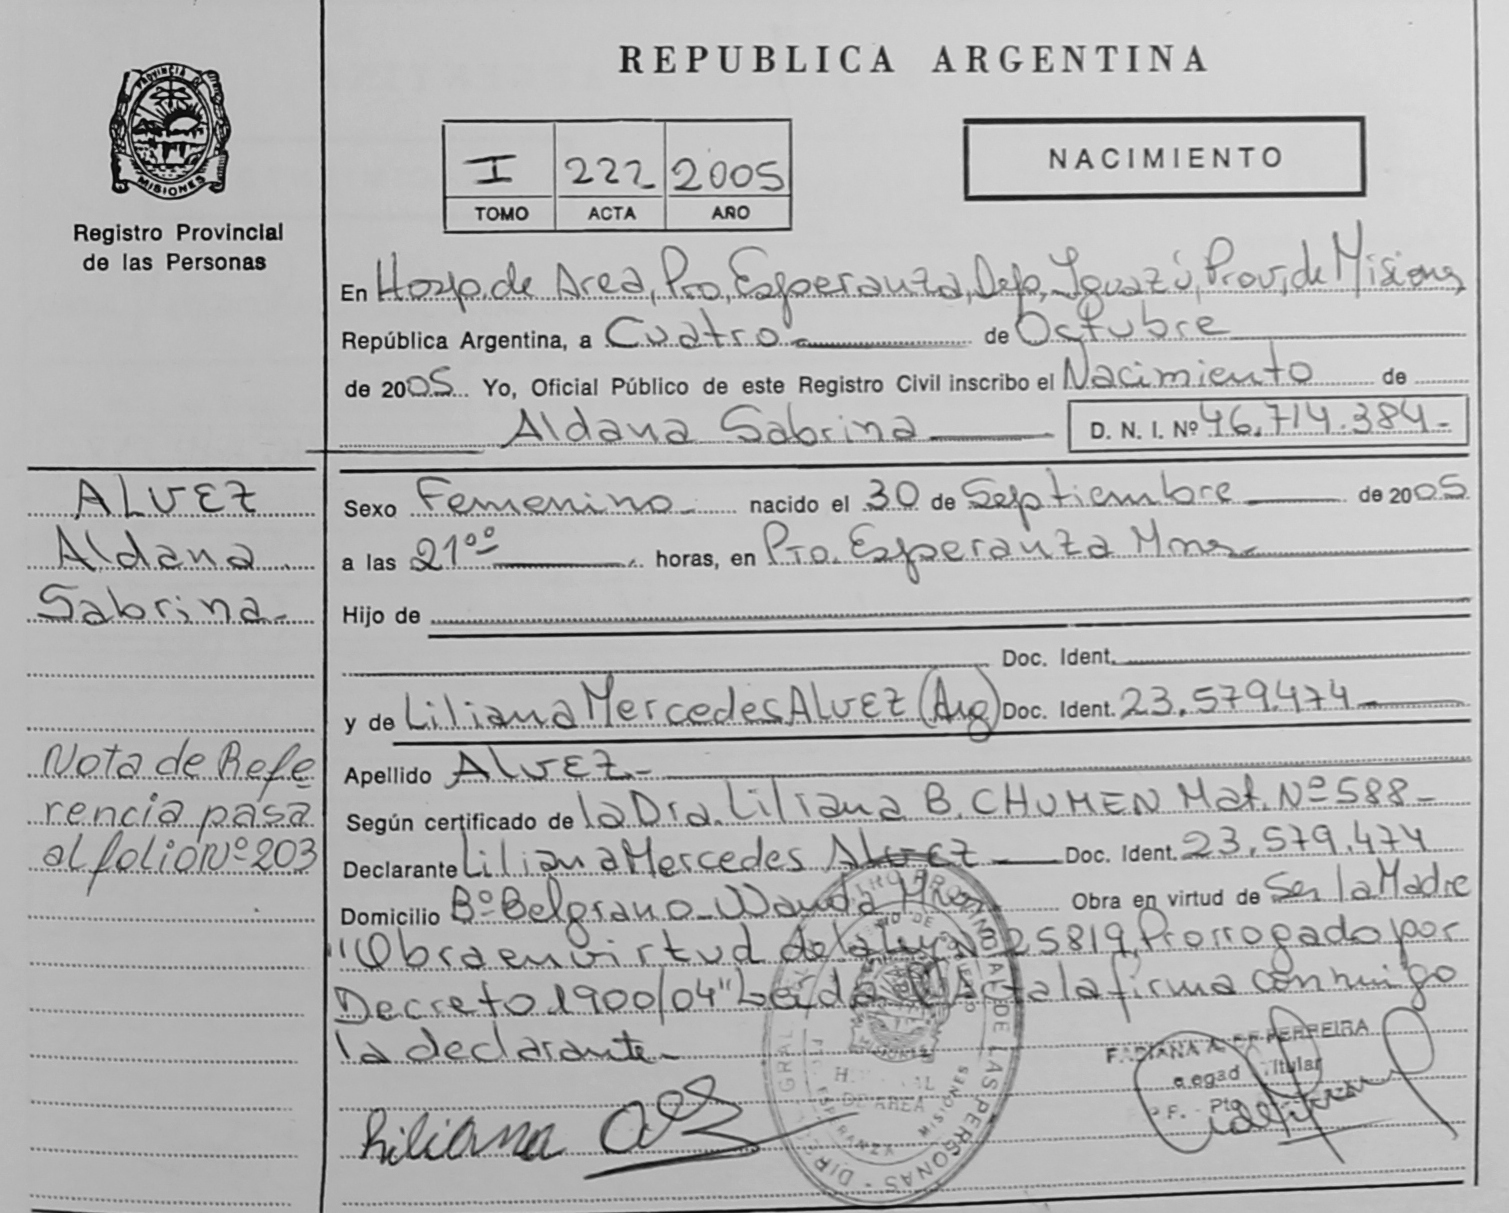 REPUBLICA ARGENTINA
PROVINCIA DE MISIONES
Registro Provincial
de las Personas
I 222 2005
TOMO ACTA AÑO
NACIMIENTO
En Hosp. de Area, Pto, Esperanza, Dep, Iguazú, Prov, de Misiones
República Argentina, a Cuatro de Octubre
de 2005 Yo, Oficial Público de este Registro Civil inscribo el Nacimiento de
Aldana Sabrina D. N. I. Nº 46.714.384-
ALVEZ
Aldana
Sabrina-
Nota de Refe
rencia pasa
al folio Nº 203
Sexo Femenino- nacido el 30 de Septiembre de 2005
a las 21ºº horas, en Pto. Esperanza Mnes
Hijo de
Doc. Ident.
y de Liliana Mercedes ALVEZ (Arg) Doc. Ident. 23.579.474
Apellido ALVEZ-
Según certificado de la Dra. Liliana B. CHUMEN Mat. Nº 588-
Declarante Liliana Mercedes Alvez Doc. Ident. 23.579.474
Domicilio Bº Belgrano-Wanda Mnes Obra en virtud de Ser la Madre
"Obra en virtud de la Ley Nº 25819, Prorrogado por
Decreto 1900/04" Leída el Acta la firma conmigo
la declarante-
Liliana
FABIANA A. DE FERREIRA
Titular
DE LAS PERSONAS
DE AREA
ESPERANZA MISIONES